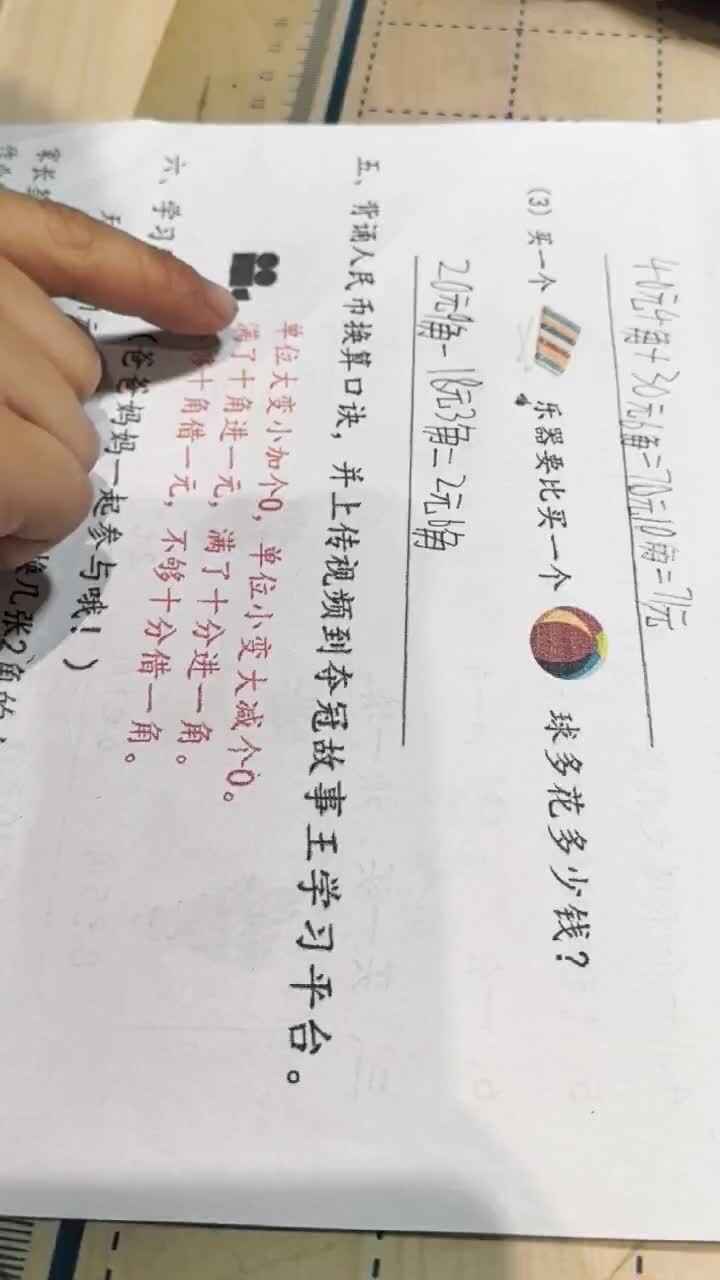 40元4角+30元6角=70元10角=71元
(3) 买一个 乐器要比买一个 球多花多少钱？
20元9角-18元3角=2元6角
五、背诵人民币换算口诀，并上传视频到夺冠故事王学习平台。
单位大变小加个0，单位小变大减个0。
满了十角进一元，满了十分进一角。
十角借一元，不够十分借一角。
六、学习
（爸爸妈妈一起参与哦！）
几张2角的